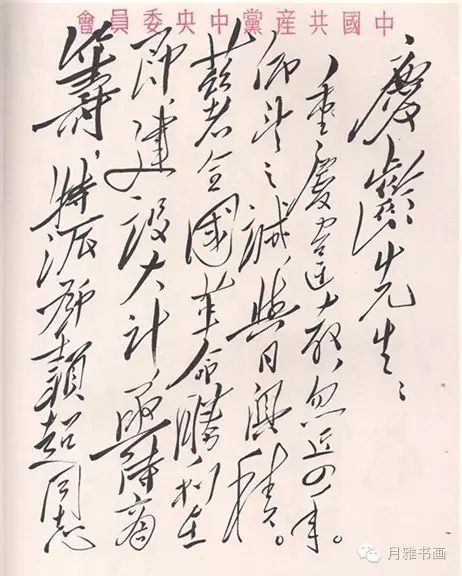 中國共產黨中央委員會
慶齡先生：
重慶違教，忽近四年。
仰望之誠，與日俱積。
茲者全國革命勝利在
即，建設大計，亟待商
籌，特派鄧穎超同志
月雅书画